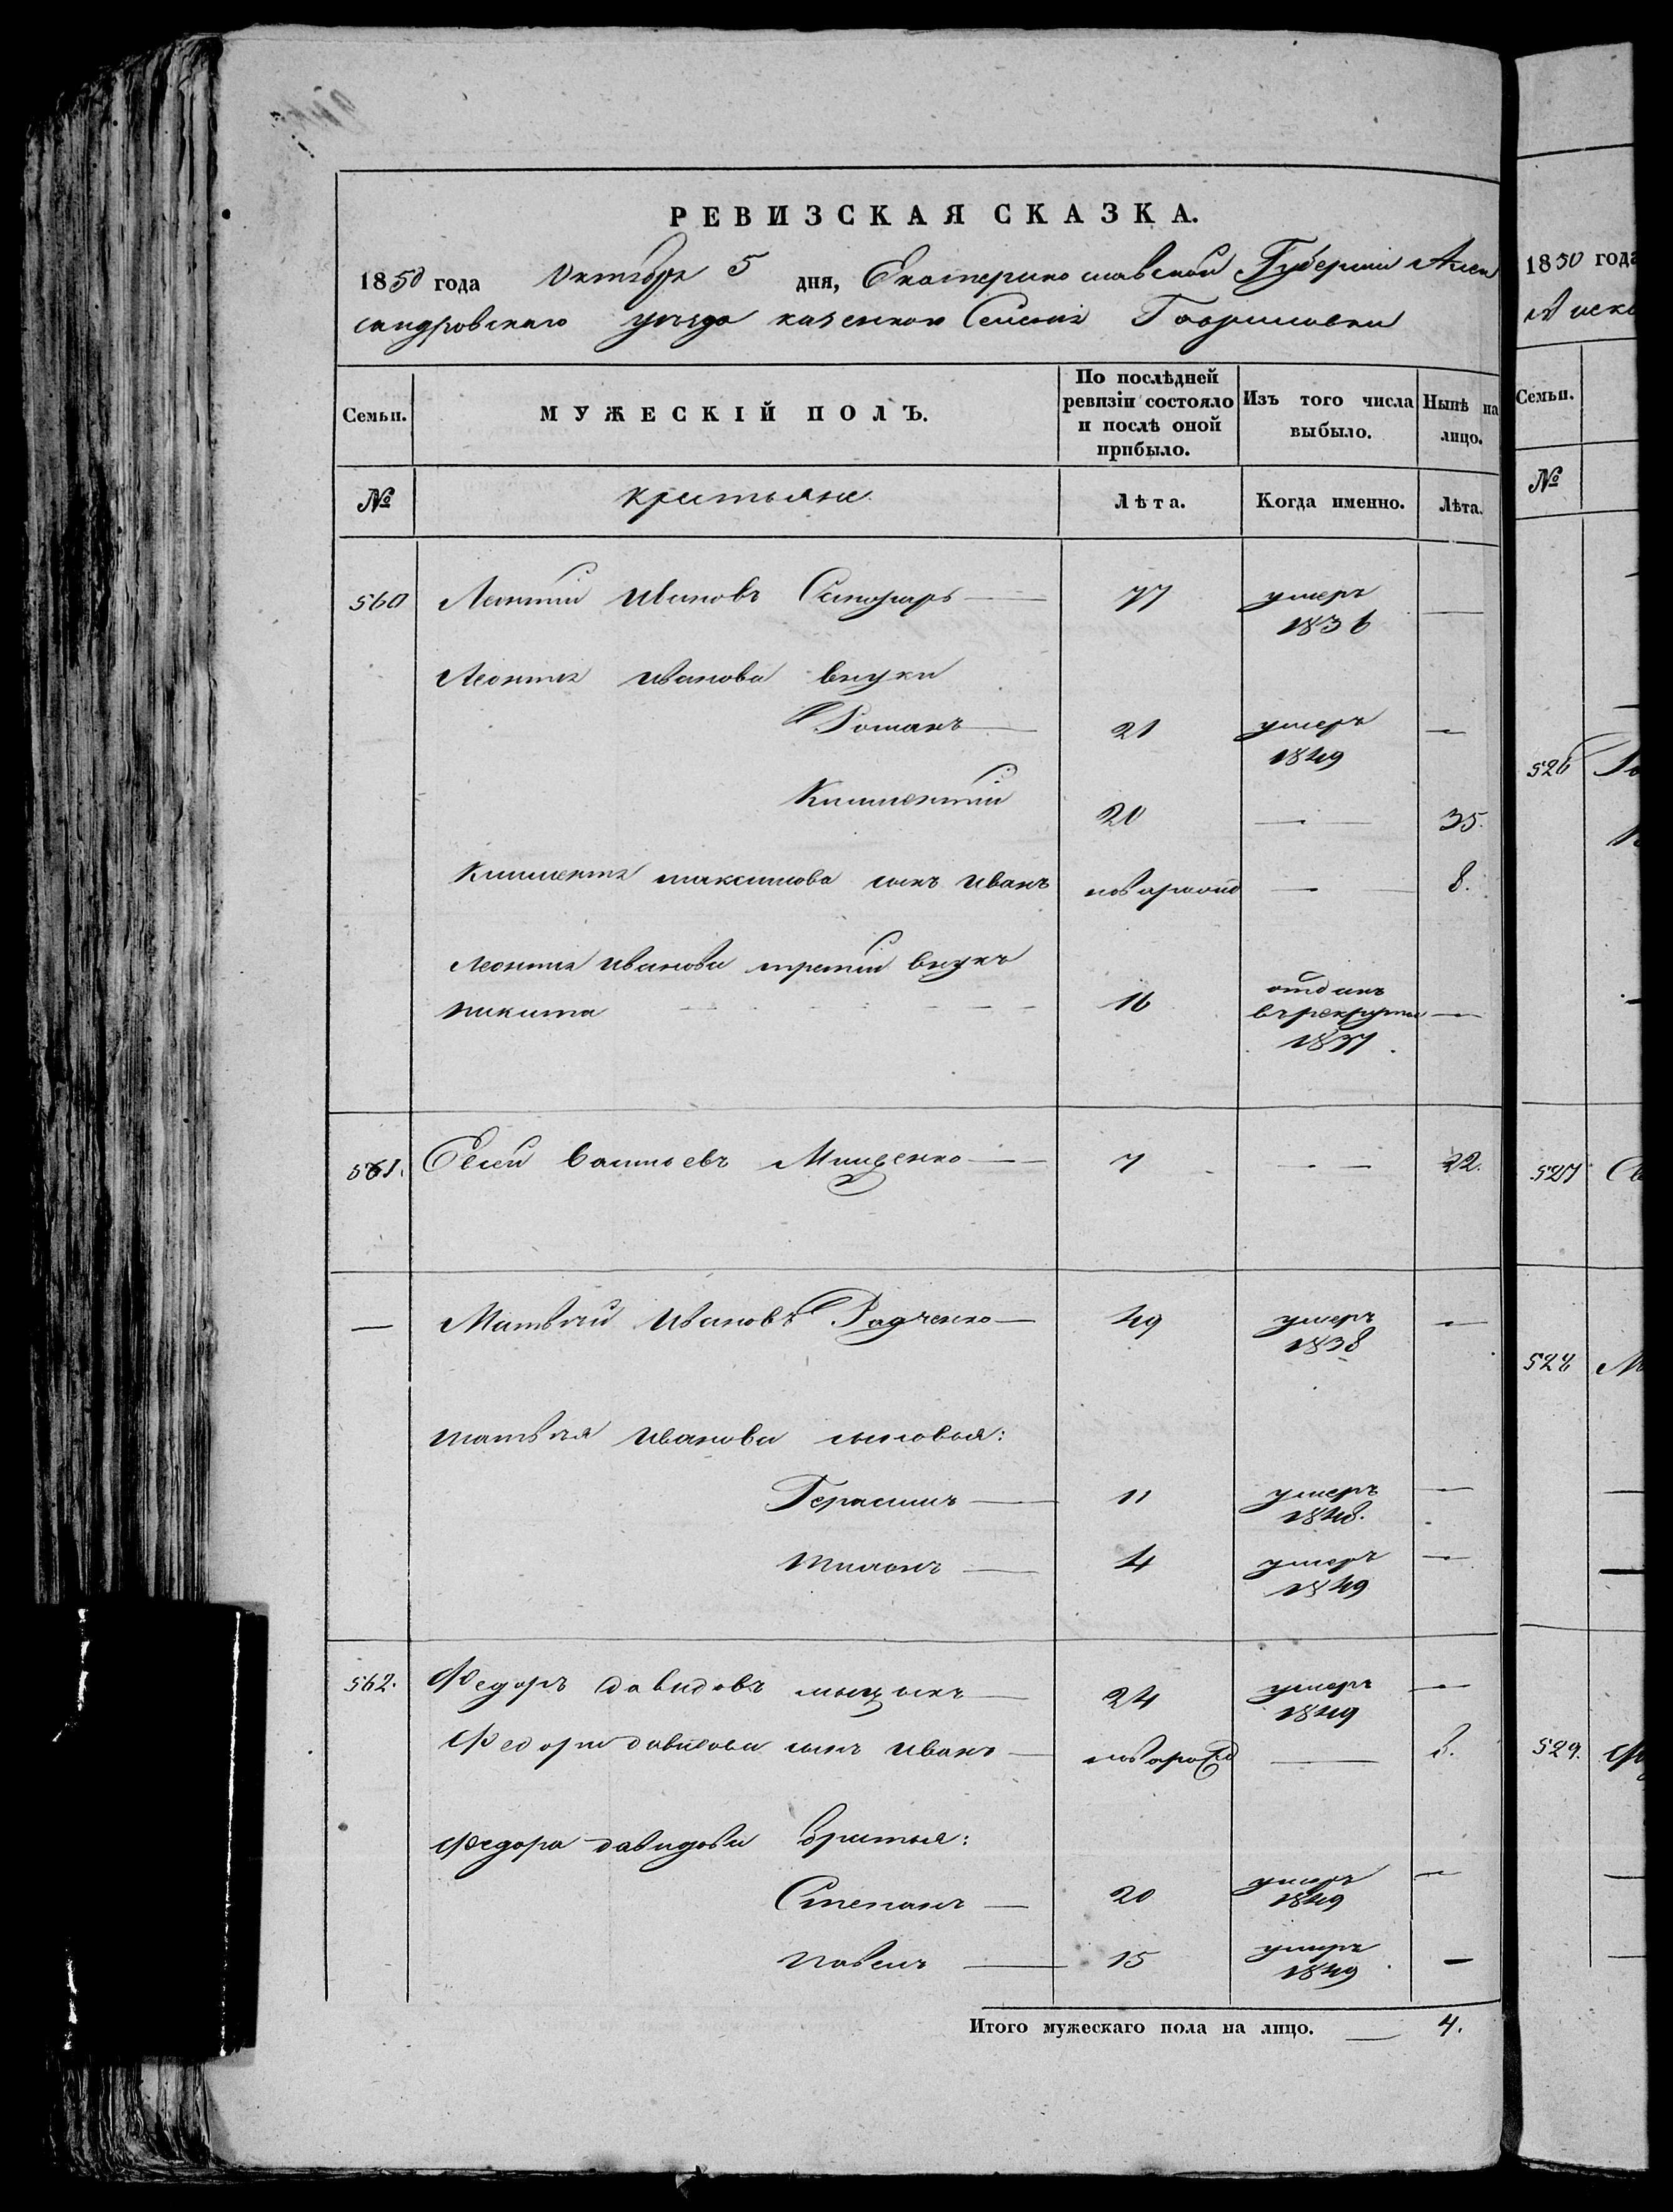 РЕВИЗСКАЯ СКАЗКА.
1850 года Октября 5 дня, Екатеринославской Губернии Алек
сандровскаго уезда казенного Селения Гавриловки
Семьи. МУЖЕСКІЙ ПОЛЪ. По послѣдней ревизіи состояло и послѣ оной прибыло. Изъ того числа выбыло. Нынѣ на лицо.
№ крестьяне Лѣта. Когда именно. Лѣта.
560 Леонтий Ивановъ 77 умеръ 1836 —
Леонтия Иванова внуки
Романъ — 21 умеръ 1849 —
Климентий 20 — 35.
Климентия максимова сынъ Иванъ новорожд — 8.
Леонтия Иванова третий внукъ
никита 16 отданъ въ рекруты 1837. —
561. Евсей Мищенко — 7 — 22.
— Матвѣй Ивановъ Радченко — 49 умеръ 1838 —
матвѣя Иванова сыновья:
Герасимъ — 11 умеръ 1848. —
— 4 умеръ 1849 —
562. Федоръ давидовъ — 24 умеръ 1849 —
Федора давидова сынъ Иванъ — новорожд — 8.
Федора давидова братья:
Степанъ — 20 умеръ 1849 —
павелъ — 15 умеръ 1849 —
Итого мужескаго пола на лицо. — 4.
1850 года
Семьи.
№
526
527
528
529.